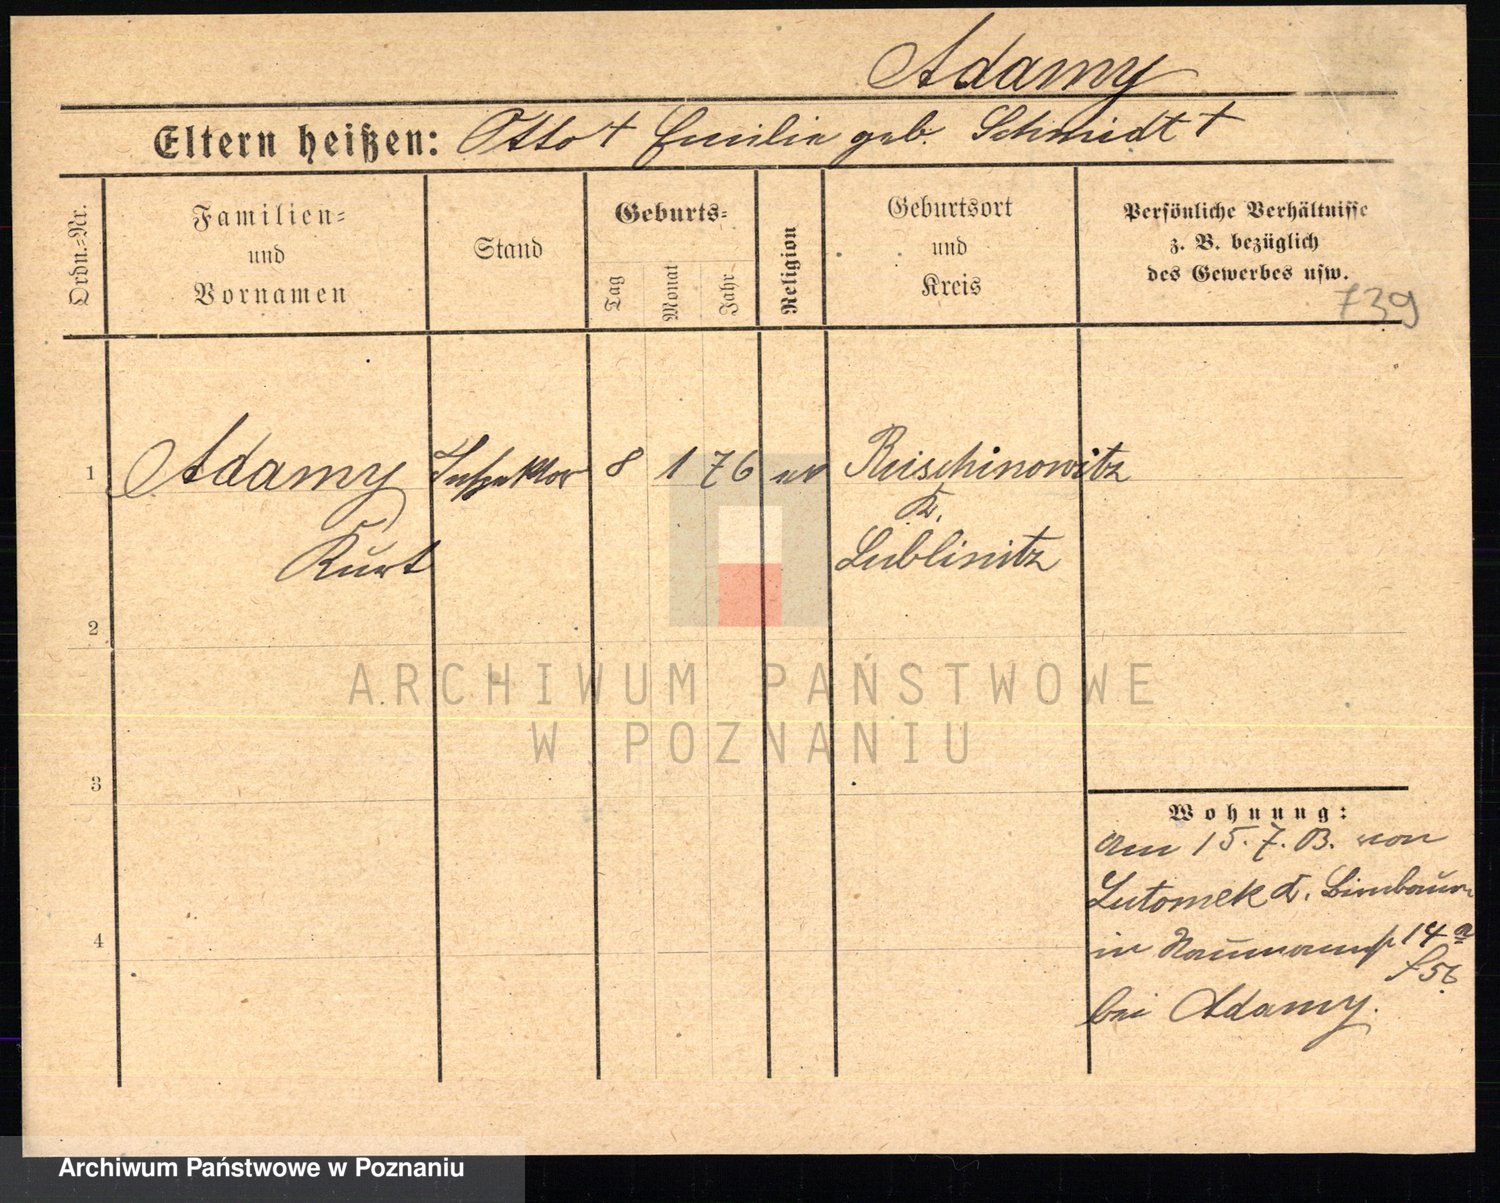 Adamy
Eltern heißen: Otto † Emilie geb. Schmidt †
Ordn.=Nr.
Familien=
und
Vornamen
Stand
Geburts=
Tag
Monat
Jahr
Religion
Geburtsort
und
Kreis
Persönliche Verhältnisse
z. B. bezüglich
des Gewerbes usw.
739
1 Adamy Inspektor 8 1 76 ev Reischinowitz
K.
Kurt Lublinitz
2
ARCHIWUM PAŃSTWOWE
W POZNANIU
3
Wohnung:
am 15.7.03. von
Lutomek K. Birnbaum
in Naumannst 14a
bei Adamy.
4
Archiwum Państwowe w Poznaniu